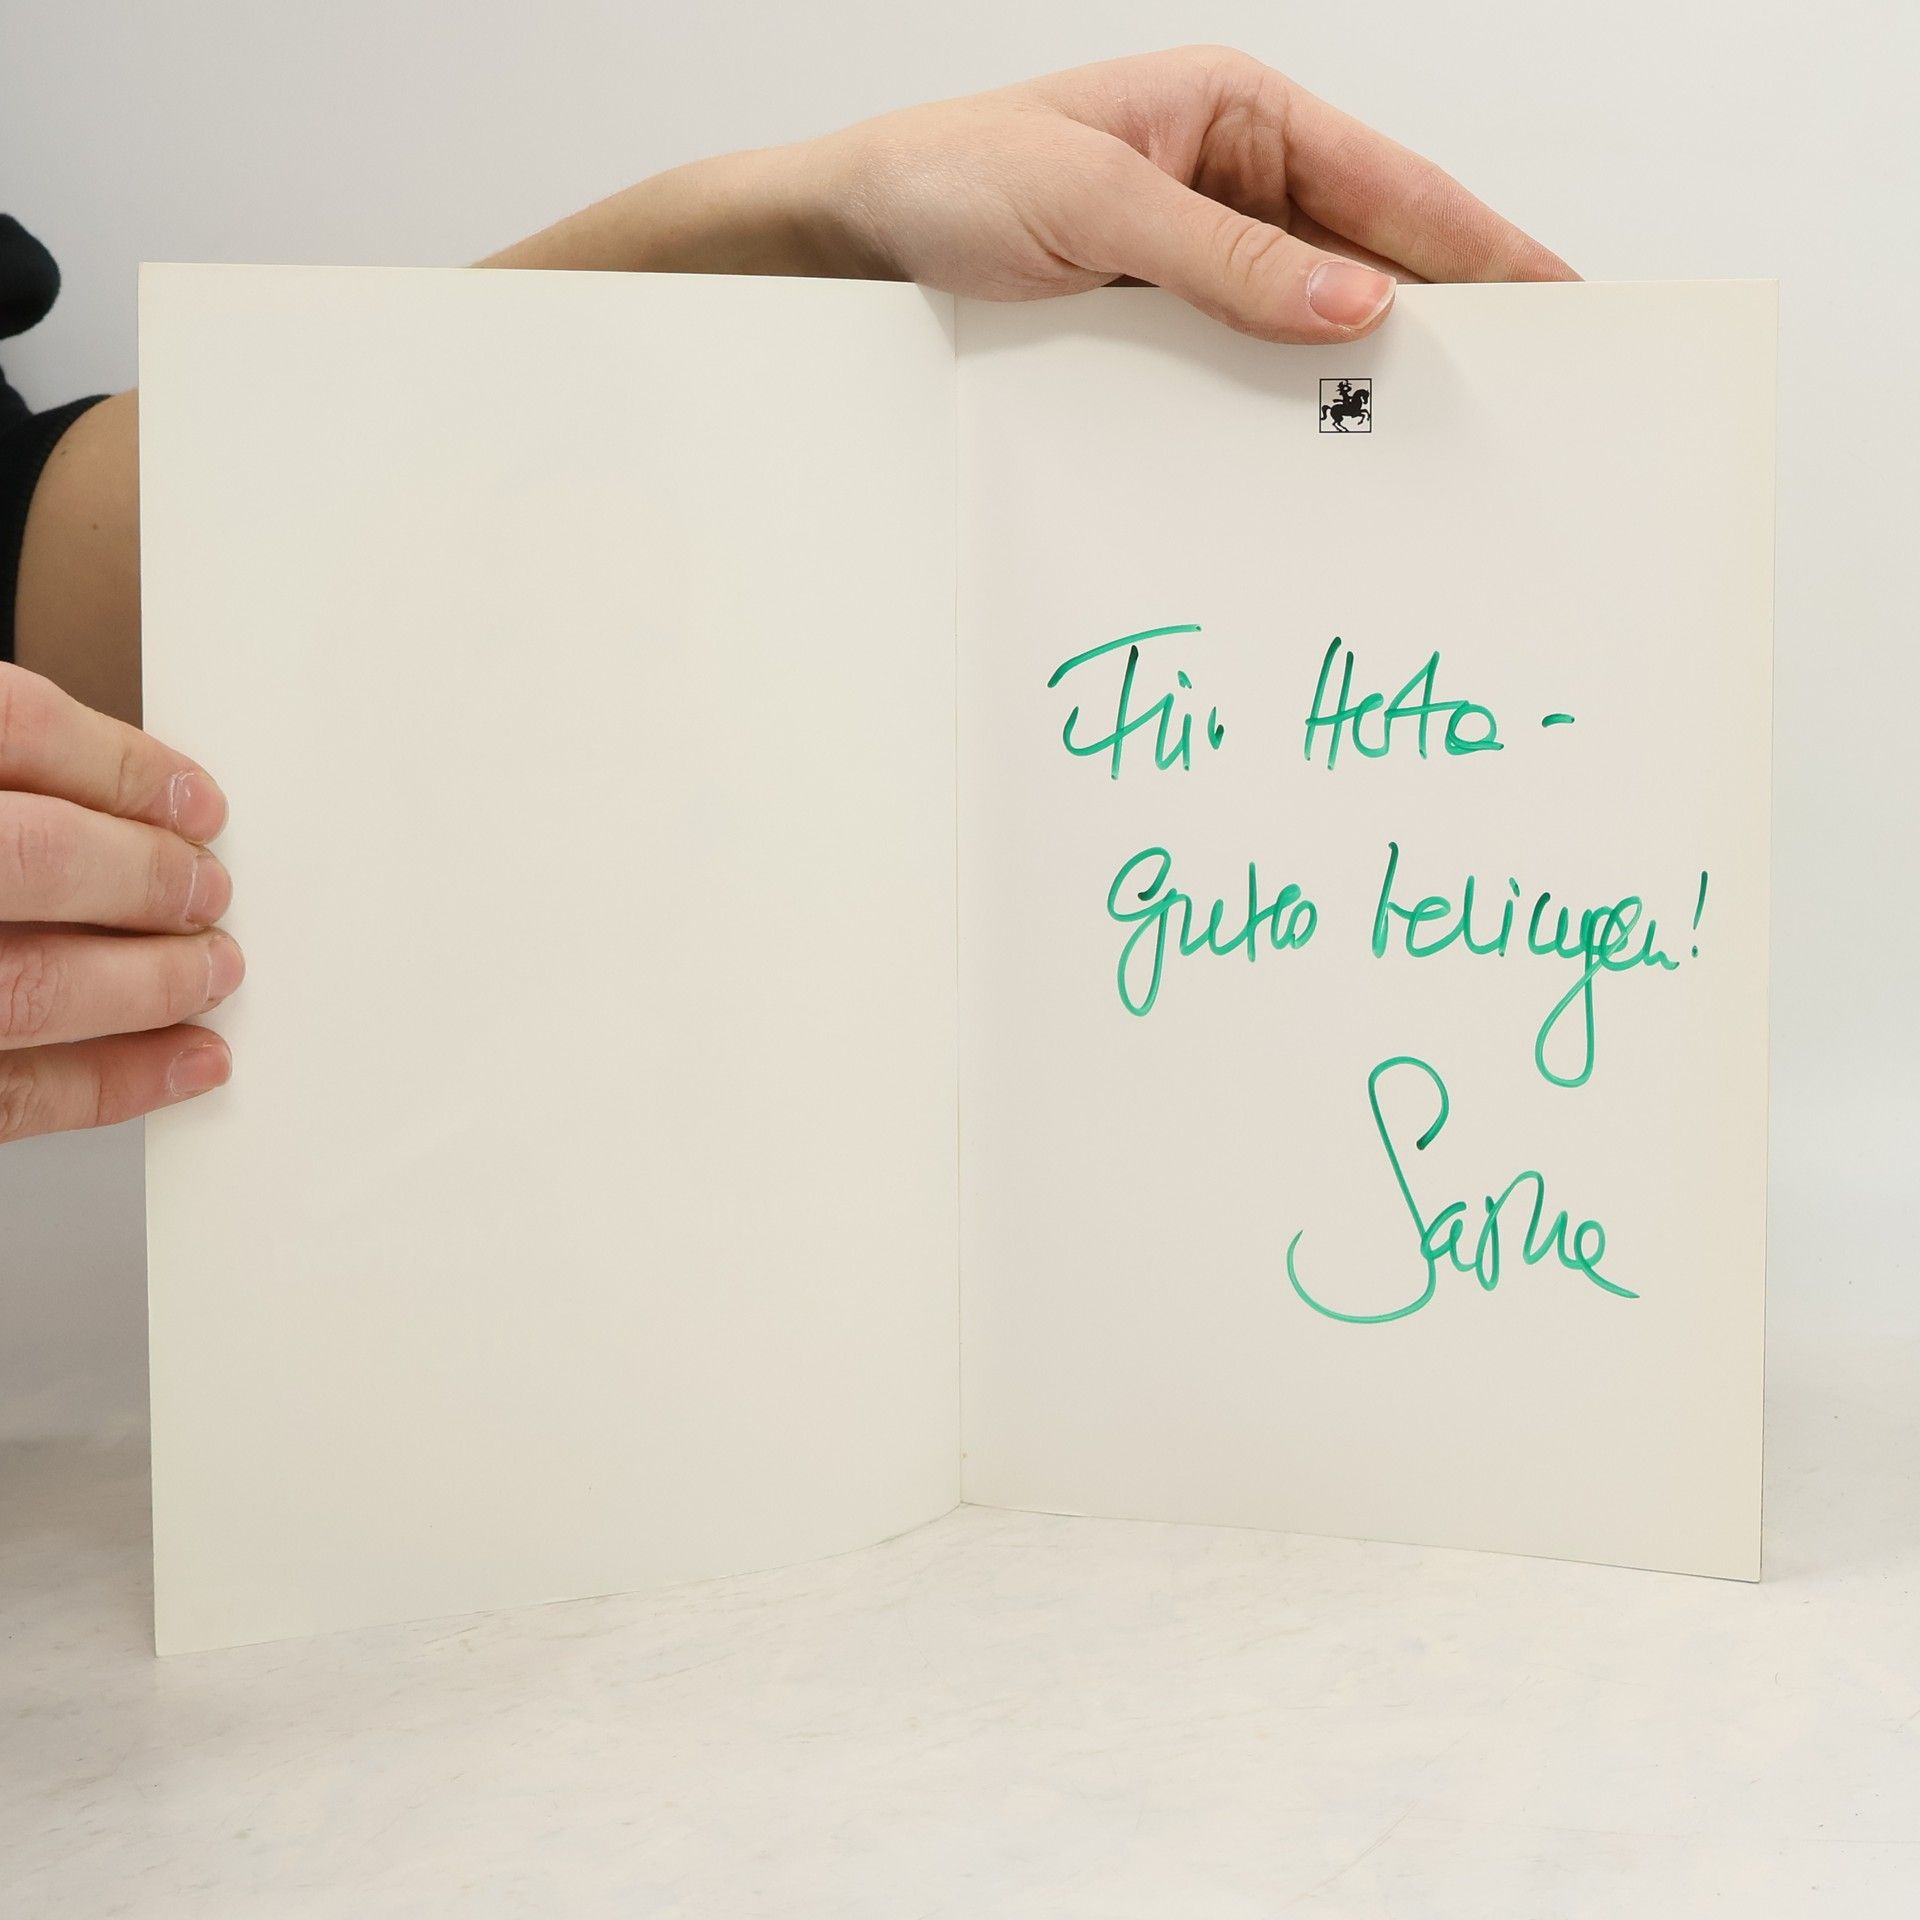 Für Heta -
Gutes Gelingen!
Sarne